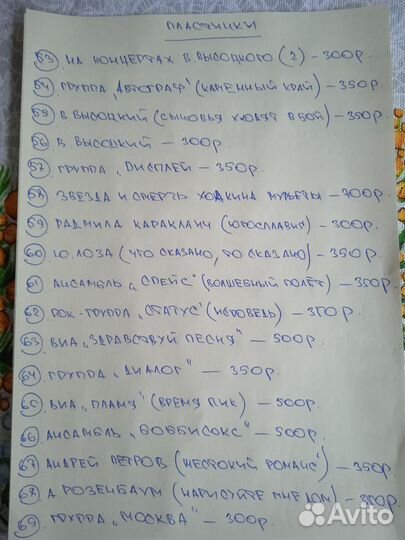 ПЛАСТИНКИ
53 НА КОНЦЕРТАХ В. ВЫСОЦКОГО (2) – 300р.
54 ГРУППА „АВТОГРАФ" (КАМЕННЫЙ КРАЙ) – 350р.
55 В. ВЫСОЦКИЙ (СЫНОВЬЯ УХОДЯТ В БОЙ) – 350р.
56 В. ВЫСОЦКИЙ – 300р.
57 ГРУППА „ДИСПЛЕЙ – 350р.
58 ЗВЕЗДА И СМЕРТЬ ХОАКИНА МУРЬЕТЫ – 700р.
59 РАДМИЛА КАРАКЛАИЧ (ЮГОСЛАВИЯ) – 300р.
60 Ю. ЛОЗА (ЧТО СКАЗАНО, ТО СКАЗАНО) – 350р.
61 АНСАМБЛЬ „СПЕЙС" (ВОЛШЕБНЫЙ ПОЛЁТ) – 350р.
62 РОК-ГРУППА „СТАТУС" (ИСПОВЕДЬ) – 350р.
63 ВИА „ЗДРАВСТВУЙ ПЕСНЯ" – 500р.
64 ГРУППА „ДИАЛОГ" – 350р.
65 ВИА „ПЛАМЯ" (ВРЕМЯ ПИК) – 500р.
66 АНСАМБЛЬ „БОББИСОКС" – 500р.
67 АНДРЕЙ ПЕТРОВ (ЖЕСТОКИЙ РОМАНС") – 350р.
68 А. РОЗЕНБАУМ (НАРИСУЙТЕ МНЕ ДОМ) – 350р.
69 ГРУППА „МОСКВА" – 300р.
Avito